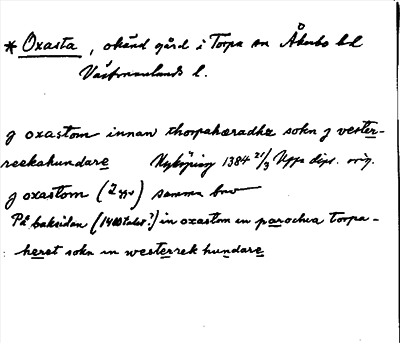 * Oxasta, okänd gård i Torpa sn Åkerbo hd
Västmanlands l.
j oxastom innan thorpahæradhæ sokn j vester-
reekahundare Nyköping 1384 21/3 Uppa dipl. orig.
j oxastom (2 ggr) samma brev
På baksidan (1400talet?) in oxastom en parochia torpa-
heret sokn in westerrek hundare